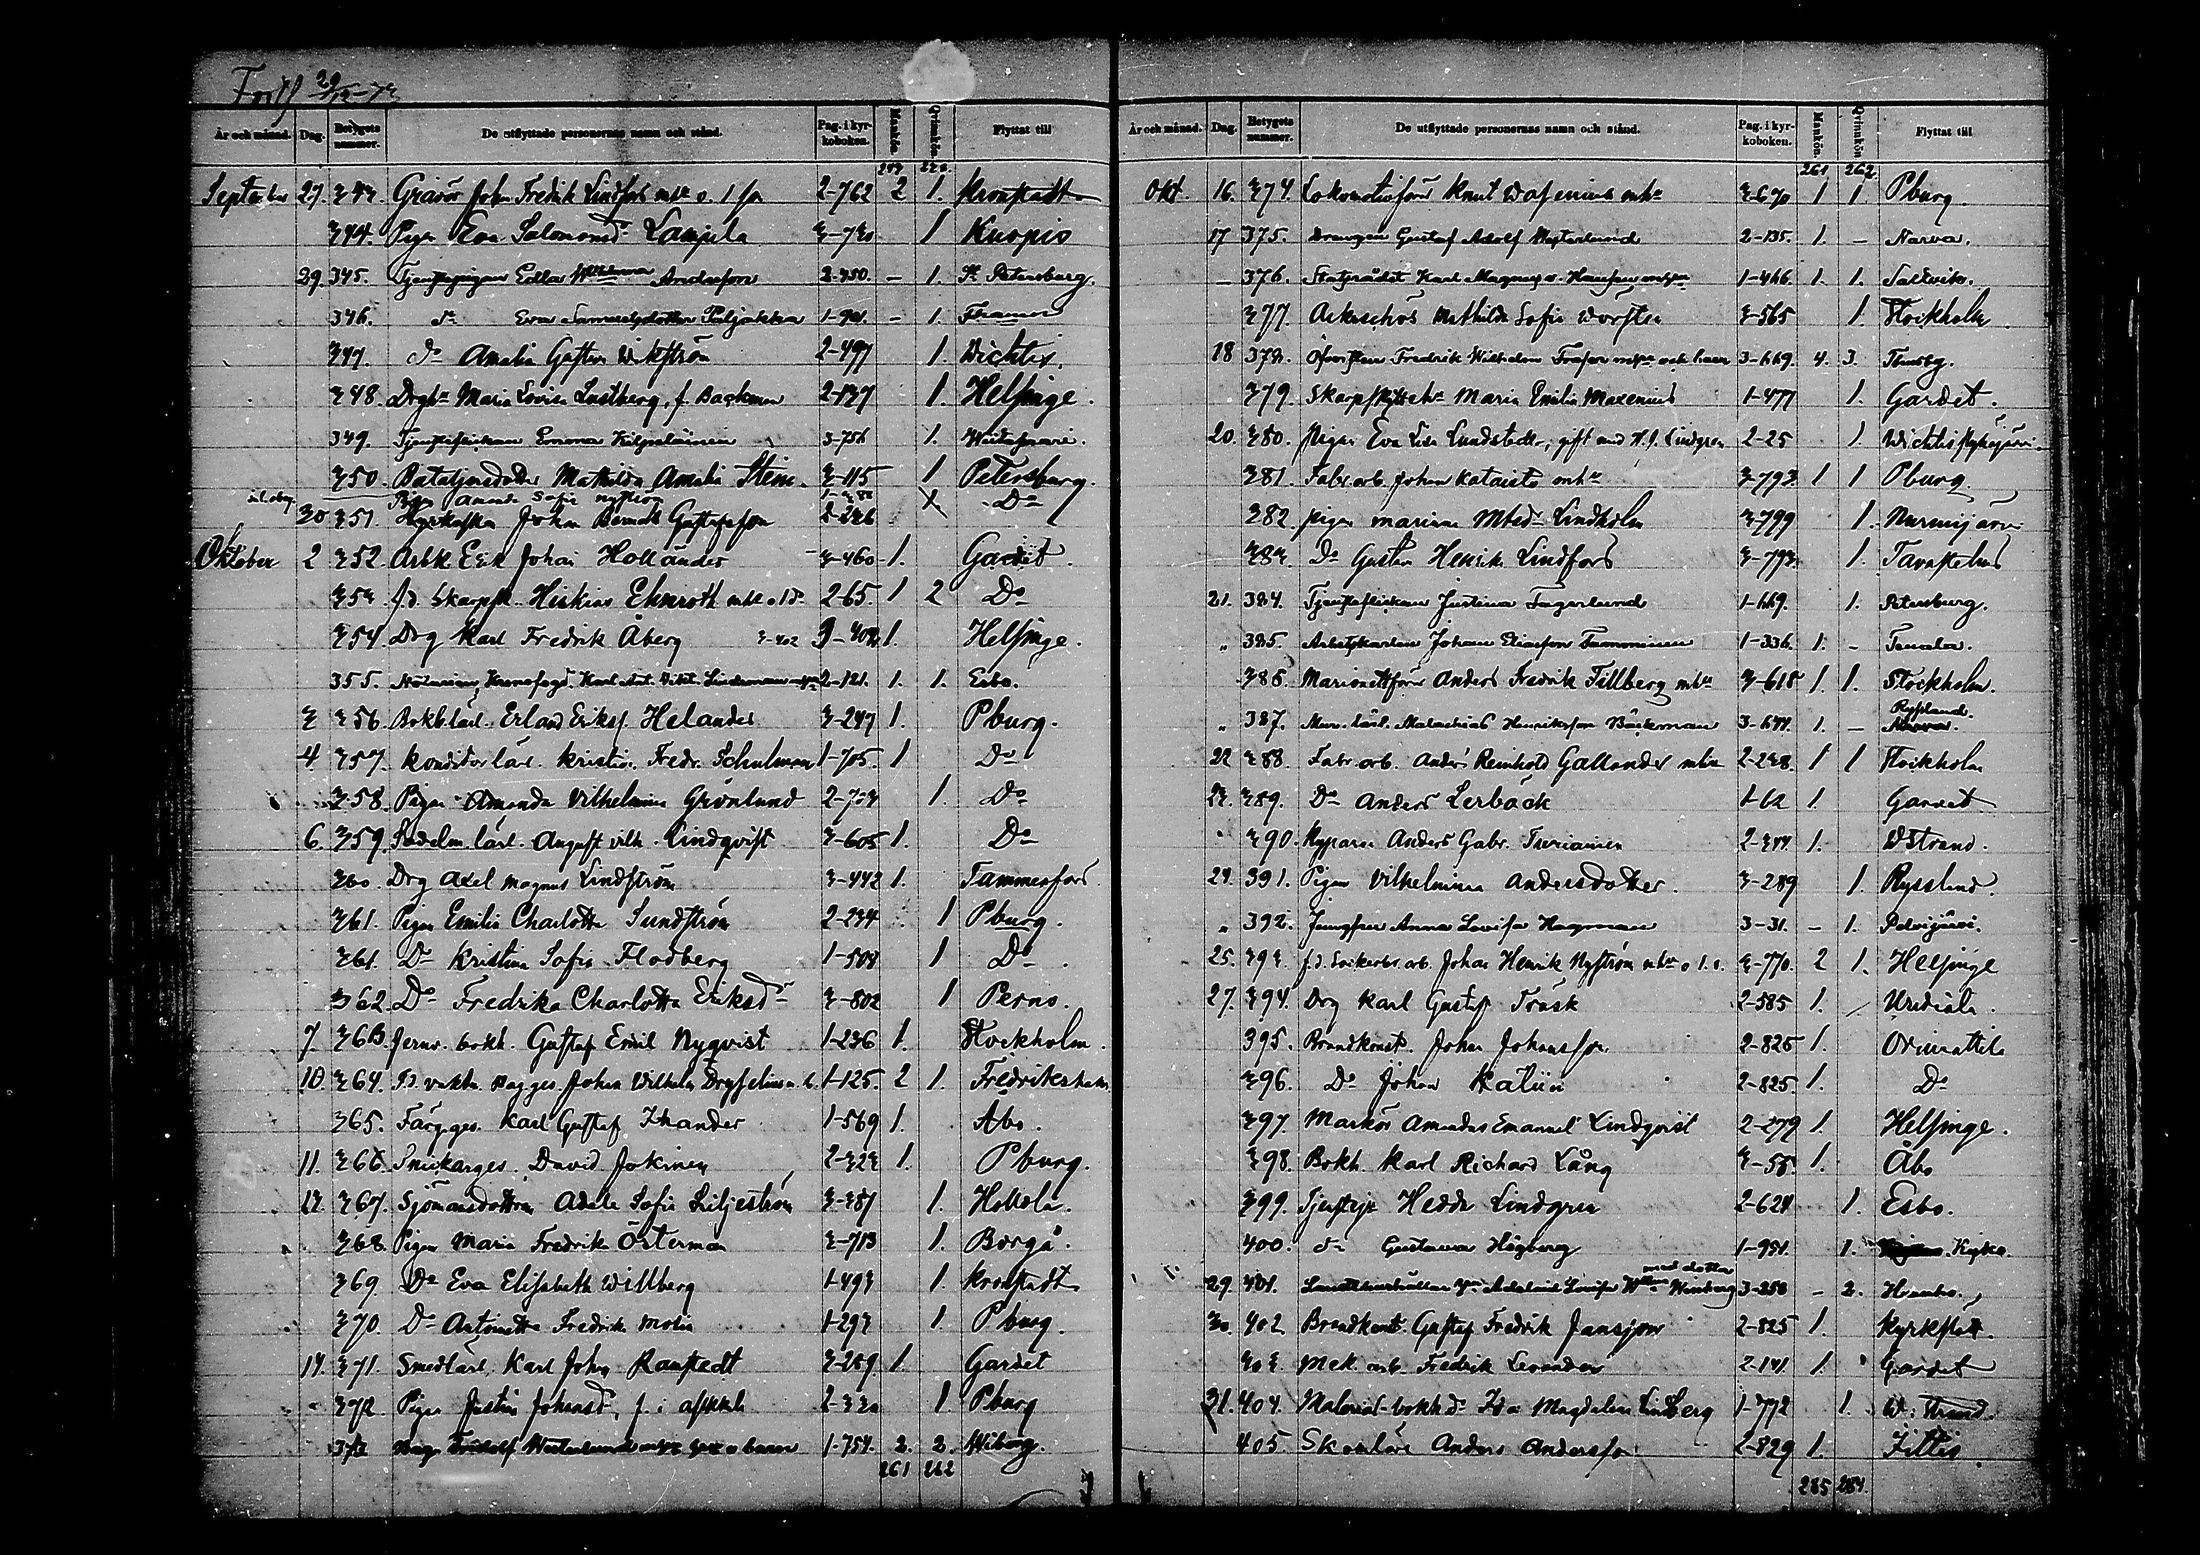 Forts 29/12-73
År och månad. Dag. Betygets nummer. De utflyttade personernas namn och stånd. Pag. i kyrkoboken. Mankön. Qvinnkön. Flyttat till
239 220
September 27. 343. Gravör Johan Fredrik Lindfors mhu o. 1 so 2-762 2 1. Kronstadt
344. Pigan Eva Salomonsdr Laujula 3-730 1 Kuopio
29. 345. Tjenstepigan Edla Wilhelmina Andersson 2-450. – 1. St Petersburg.
346. do Eva Samuelsdotter Paljakka – 1.
347. do Amalia Gustava Wikström 2-497 1. Wichtis.
348. Drgha Maria Lovisa Lustberg, f. Backman 2-137 1. Helsinge.
349. Tjensteflickan Emma Kilpeläinen 3-756 1.
350. Bataljonsdotter Mathilda Amalia Stein 3-115 1 Petersburg.
Pigan Amanda Sofie Nyström
30 351. Johan Berndt Gustafsson 2-226 X Do
Oktober 2 352. Arbk Erik Johan Hollander 3-460 1. Gardet.
353. f.d. Skarpsk. Hiskias Ehnroth mhu o 1 dr 2-65. 1 2 Do
354. Drg Karl Fredrik Åberg 3-402 3-402 1. Helsinge.
355. Kronofogd. Karl Ant. Vikt. Lindeman 2-121. 1. 1. Esbo.
3 356. Bokb.lärl. Erland Eriks. Helander 3-247 1. Pburg.
4 357. Konditorlärl. Kristian Fredr. Schulman 1-705. 1 Do
358. Pigan Amanda Vilhelmina Grönlund 2-703 1. Do
6. 359. Sadelm.lärl. August Vilh. Lindqvist 3-605 1. Do
360. Drg Axel Magnus Lindström 3-442 1. Tammerfors.
361. Pigan Emilia Charlotta Sundström 2-234 1 Pburg.
361. Do Kristina Sofia Flodberg 1-504 1 Do
362. Do Fredrika Charlotta Eriksdr 3-802 1 Perno.
7. 363. Jernv. bokh. Gustaf Emil Nyqvist 1-236 1. Stockholm.
10. 364. Johan Vilhelm 1-125. 2 1. Fredrikshamn
365. Färgges. Karl Gustaf Ithander 1-569 1. Åbo.
11. 366. Snickarges. David Jokinen 2-323 1. Pburg.
13. 367. Sjömansdottren Adele Sofia Liljeström 3-387 1. Hollola.
368. Pigan Maria Fredrika Österman 3-713 1. Borgå.
369. Do Eva Elisabeth Willberg 1-493 1. Kronstadt
370. Do Antoinetta Fredrika Molin 1-293 1. Pburg.
14. 371. Smedlärl. Karl Johan Ranstedt 3-259. 1. Gardet
372. Pigan Justina Johansdr, f. i 2-330 1 Pburg
373 1-754. 2. 2. Wiborg.
261 262
År och månad. Dag. Betygets nummer. De utflyttade personernas namn och stånd. Pag. i kyrkoboken. Mankön. Qvinnkön. Flyttat till
261 262
Okt. 16. 374. Lokomotivförar Knut Wafenius mhu 3-670 1 1. Pburg.
17 375. Drengen Gustaf Adolf Westerlund 2-135. 1. – Narva.
– 376. Statsrådet Karl Magnus v. Haufsen m. fru 1-466 1. 1. Saltvik.
377. Mathilda Sofia Worsten 3-565 1. Stockholm.
18 378. Öfversten Fredrik Wilhelm mfru och barn 3-669. 4. 3. Thusby.
379. Maria Emilia Maxenius 1-477 1. Gardet.
20. 380. Pigan Eva Lisa Lundstedt, gift med Lindgren 2-25 1. Wichtis
381. Fabr.arb. Johan Kataisto mhu 3-793 1 1 Pburg.
382. Pigan Marina Mtsdr Lindholm 3-799 1. Nurmijärvi
383. Do Gustava Henrika Lindfors 3-793. 1. Tavastehus
21. 384. Tjensteflickan Justina Fagerlund 1-669. 1. Petersburg.
„ 385. Arbetskarlen Johan Eliasson Tamminen 1-336. 1. – Tenala.
386. Marionettförev. Anders Fredrik Tillberg mhu 3-618 1. 1. Stockholm.
„ 387. Mur.lärl. Malachias Henriksson Bäckman 3-644. 1. – Ryssland.
22 388. Fabr.arb. Anders Reinhold Gallander mhu 2-238. 1 1 Stockholm
23. 389. Do Anders Lerbäck 1-62 1. Gardet
390. Kyparen Anders Gabr. Turiainen 2-344 1. W Strand.
24. 391. Pigan Vilhelmina Andersdotter. 3-289 1. Ryssland.
„ 392. Jungfrun Anna Lovisa Hagman 3-31. – 1.
25. 393. f.d. Johan Henrik Nyström mhu o 1 s. 3-770. 2 1. Helsinge
27. 394. Drg Karl Gustaf Träsk 2-585 1. Urdiala.
395. Brandkonst. Johan Johansson 2-825 1. Orimattila
396. Do Johan Kaliin 2-825 1. Do
397. Markör Amandus Emanuel Lindqvist 2-279 1. Helsinge.
398. Bokh. Karl Richard Lång 3-58 1. Åbo
399. Tjenstep. Hedda Lindgren 2-624 1. Esbo.
400. do Gustava Högberg 1-951. 1.
med dotter
29. 401. Adelaide Lovisa Winberg 3-250 – 2.
30. 402. Brandkonst. Gustaf Fredrik Jansson 2-825 1. Kyrkslätt.
403. Mek. arb. Fredrik Levander 2-141 1. Gardet
31. 404. Material-bokh.dr Ida Magdalena Lindberg 1-772 1. W. Strand.
405. Skomlärl. Anders Andersson 2-829 1. Iittis.
285 284.